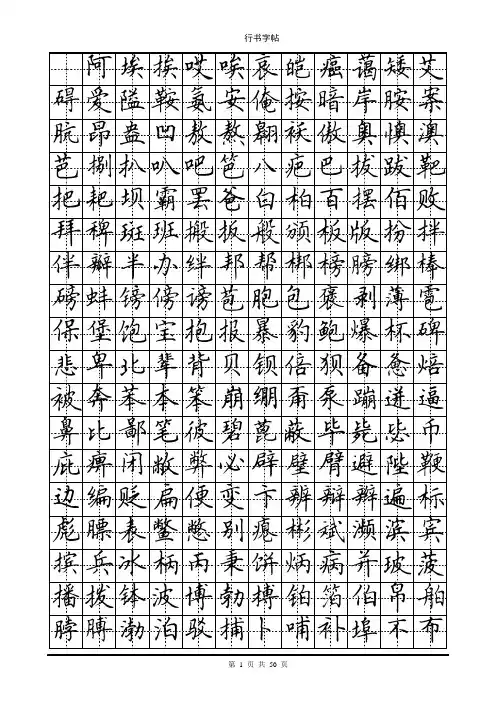 行书字帖
阿埃挨哎唉哀皑癌蔼矮艾
碍爱隘鞍氨安俺按暗岸胺案
肮昂盎凹敖熬翱袄傲奥懊澳
芭捌扒叭吧笆八疤巴拔跋靶
把耙坝霸罢爸白柏百摆佰败
拜稗斑班搬扳般颁板版扮拌
伴瓣半办绊邦帮梆榜膀绑棒
磅蚌镑傍谤苞胞包褒剥薄雹
保堡饱宝抱报暴豹鲍爆杯碑
悲卑北辈背贝钡倍狈备惫焙
被奔苯本笨崩绷甭泵蹦迸逼
鼻比鄙笔彼碧蓖蔽毕毙毖币
庇痹闭敝弊必辟壁臂避陛鞭
边编贬扁便变卞辨辩辫遍标
彪膘表鳖憋别瘪彬斌濒滨宾
摈兵冰柄丙秉饼炳病并玻菠
播拨钵波博勃搏铂箔伯帛舶
脖膊渤泊驳捕卜哺补埠不布
第 1 页 共 50 页